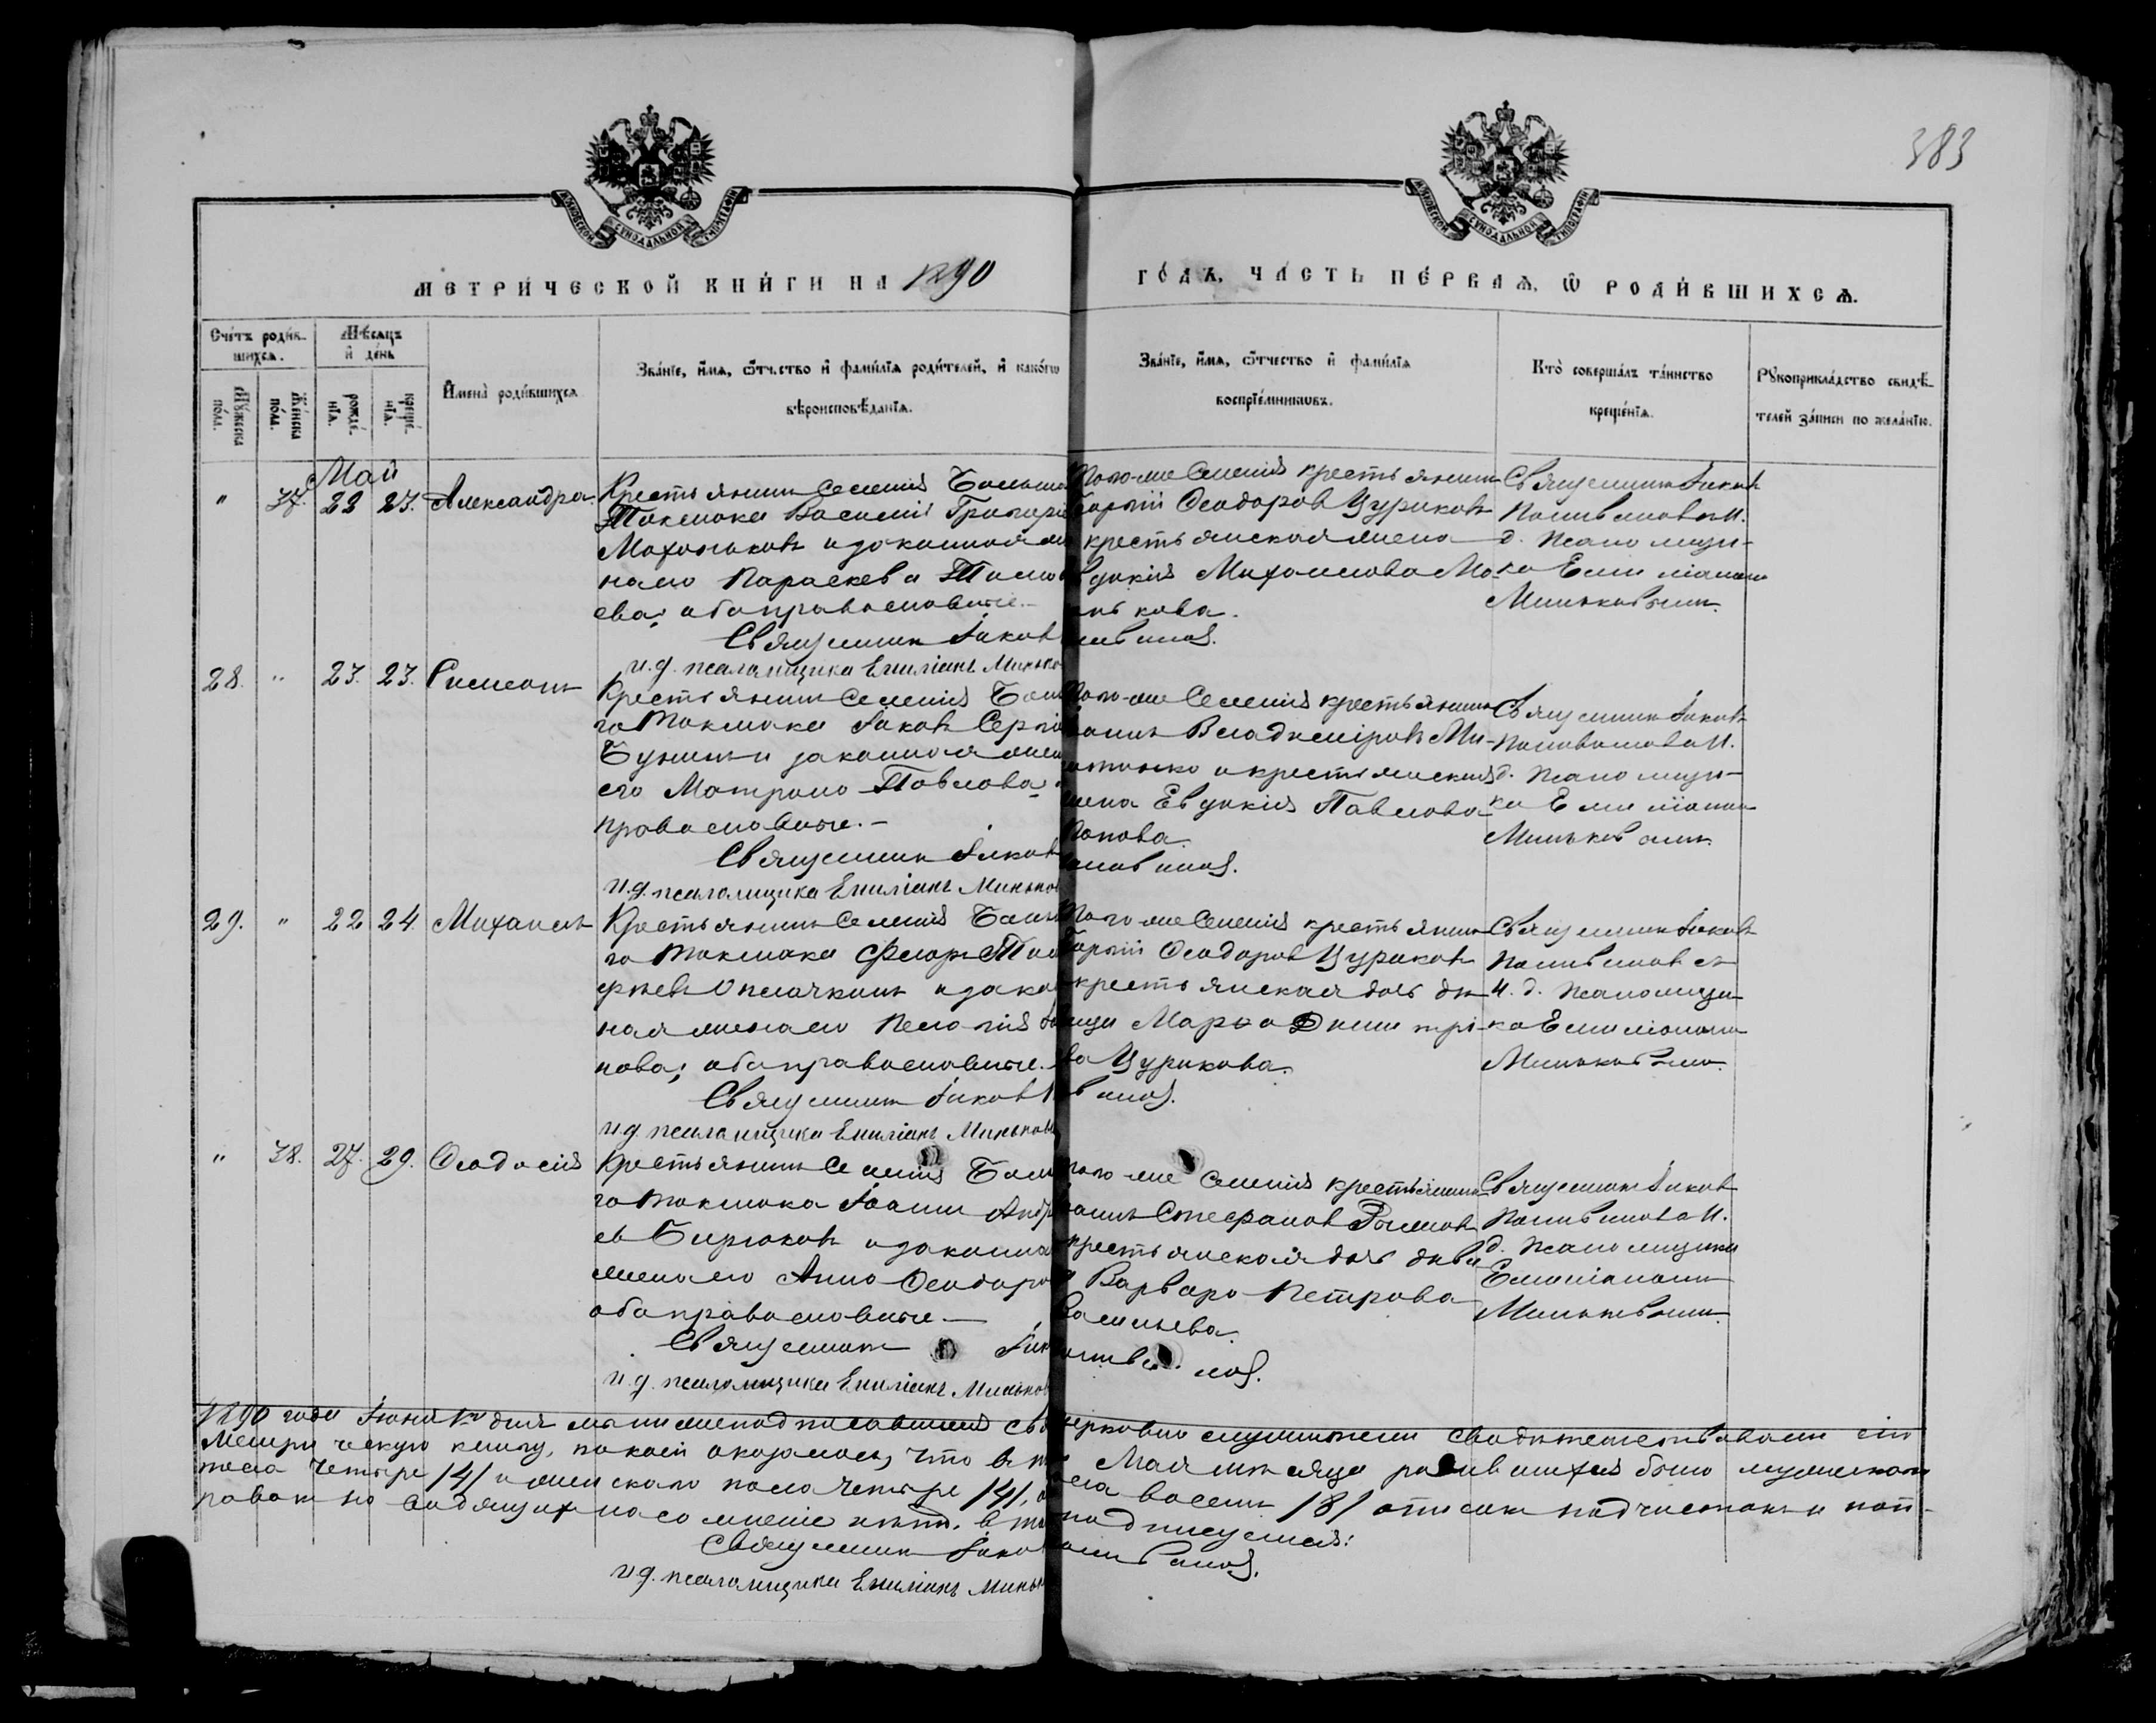 383
МОСКОВСКОЙ СѴНОДАЛЬНОЙ ТИПОГРАФІИ
МОСКОВСКОЙ СѴНОДАЛЬНОЙ ТИПОГРАФІИ
МЕТРИ́ЧЕСКОЙ КНИ́ГИ НА 1890
ГО́ДЪ, ЧА́СТЬ ПЕ́РВАѦ, Ѡ҆ РОДИ́ВШИХСѦ.
Сче́тъ роди́в-
шихсѧ.
Мѣ́сѧцъ
и҆ де́нь
Мꙋ́жеска
по́ла.
Же́нска
по́ла.
рожде́-
нїѧ.
креще́-
нїѧ.
И҆мена̀ роди́вшихсѧ
Зва́нїе, и҆́мѧ, ѻ҆́тчество и҆ фами́лїѧ роди́телей, и҆ како́гѡ
вѣроисповѣ́данїѧ.
Зва́нїе, и҆́мѧ, ѻ҆́тчество и҆ фами́лїѧ
воспрїе́мникѡвъ.
Кто̀ соверша́лъ та́инство
креще́нїѧ.
Рꙋкоприкла́дство свидѣ́-
телей за́писи по жела́нїю.
Май
" 37. 22 23. Александра
Крестьянинъ селенія Больша
Токмака Василій Григорі
Махоньковъ и законная же
на его Параскева
ева; оба православные.
Священникъ Іаков
и.д. псаломщика Емиліанъ Минько
того-же селенія крестьянинъ
Ѳеодоровъ Цуриковъ
крестьянская жена
Михайлова Ма-
нькова.
Священникъ Іаковъ
Поливановъ и.
д. псаломщи-
ка Емиліаномъ
Миньковымъ.
28. " 23. 23. Симеонъ
Крестьянинъ селенія Боль
го Токмака Іаковъ Сергіе
Бунинъ и законная жена
его Матрона Павлова
православные.-
Священникъ Іаковъ
и.д. псаломщика Емиліанъ Минько
того-же селенія крестьянинъ
Владиміровъ Ми-
и крестьянская
жена Евдокія Павлова
Попова.
Священникъ Іаковъ
Поливановъ и.
д. псаломщи-
ка Емиліаномъ
Миньковымъ
29. " 22 24. Михаилъ
Крестьянинъ селенія Боль
го Токмака Флоръ
и закон
ная жена его Пелагія
нова; оба православные.
Священникъ Іаковъ
и.д. псаломщика Емиліанъ Миньков
того-же селенія крестьянинъ
Ѳеодоровъ Цуриковъ
крестьянская дочь дѣ
вица Марѳа Димитріе
ва Цурикова.
Священникъ Іаковъ
Поливановъ съ
и. д. псаломщи-
ка Емиліаномъ
Миньковымъ.
" 38. 27. 29. Ѳеодосія
Крестьянинъ селенія Боль
го Токмака Іоаннъ Андре
евъ Бирюковъ и законная
жена его Анна Ѳеодоро
оба православные.—
Священникъ Іак
и.д. псаломщика Емиліанъ Миньков
того-же селенія крестьянинъ
Стефановъ
крестьянская дочь дѣви
Варвара Петрова
Васильева.
Священникъ Іаковъ
Поливановъ и.
д. псаломщика
Емиліаномъ
Миньковымъ.
1890 года Іюня 1го дня мы нижеподписавшіеся церковно служители свидѣтельствовали сію
Метрическую книгу, по коей оказалось, что въ Маѣ мѣсяцѣ родившихся было мужескаго
пола четыре /4/ и женскаго пола четыре /4/, восемь /8/ описокъ подчистокъ и поп-
равокъ наводящихъ на сомнѣніе нѣтъ. подписуемся:
Священникъ Іаков
и.д. псаломщика Емиліанъ Миньк